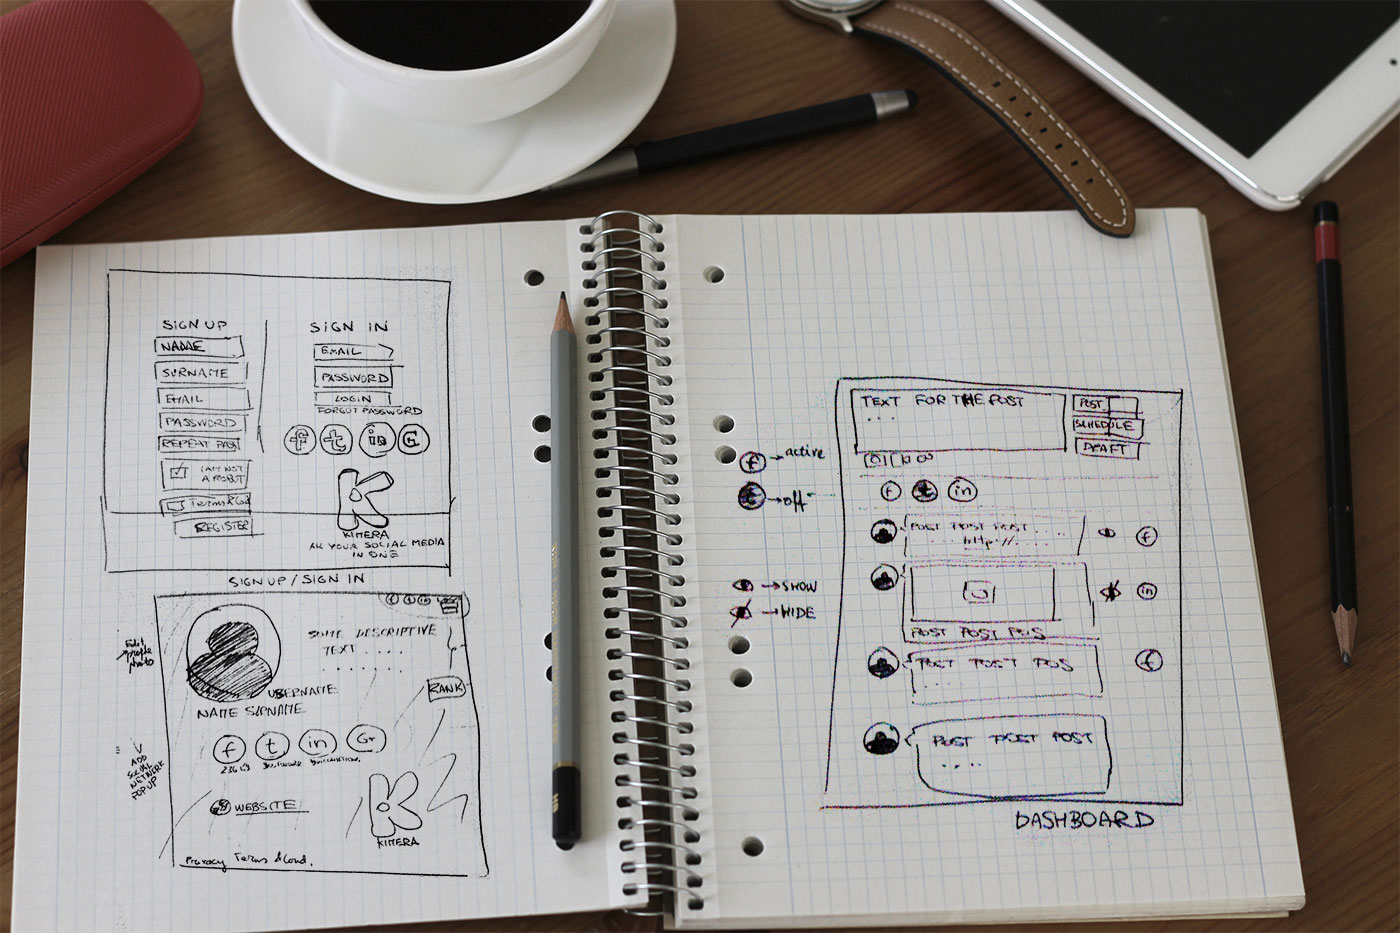 SIGN UP
NAME
SURNAME
EMAIL
PASSWORD
REPEAT PASS
I AM NOT
A ROBOT
Terms & Co
REGISTER
SIGN IN
EMAIL
PASSWORD
LOGIN
FORGOT PASSWORD
f t in G
K
KIMERA
ALL YOUR SOCIAL MEDIA
IN ONE
SIGN UP / SIGN IN
f t in
Edit
profile
photo
SOME DESCRIPTIVE
TEXT ....
RANK
USERNAME
NAME SURNAME
f t in G+
ADD
SOCIAL
NETWORK
POPUP
WEBSITE
K
KIMERA
Privacy Terms & Cond.
f → active
t → off
→ SHOW
→ HIDE
TEXT FOR THE POST
...
POST
SCHEDULE
DRAFT
f t in
POST POST POST ....
http://
f
in
POST POST POS
POST POST POS
....
f
POST POST POST
....
DASHBOARD